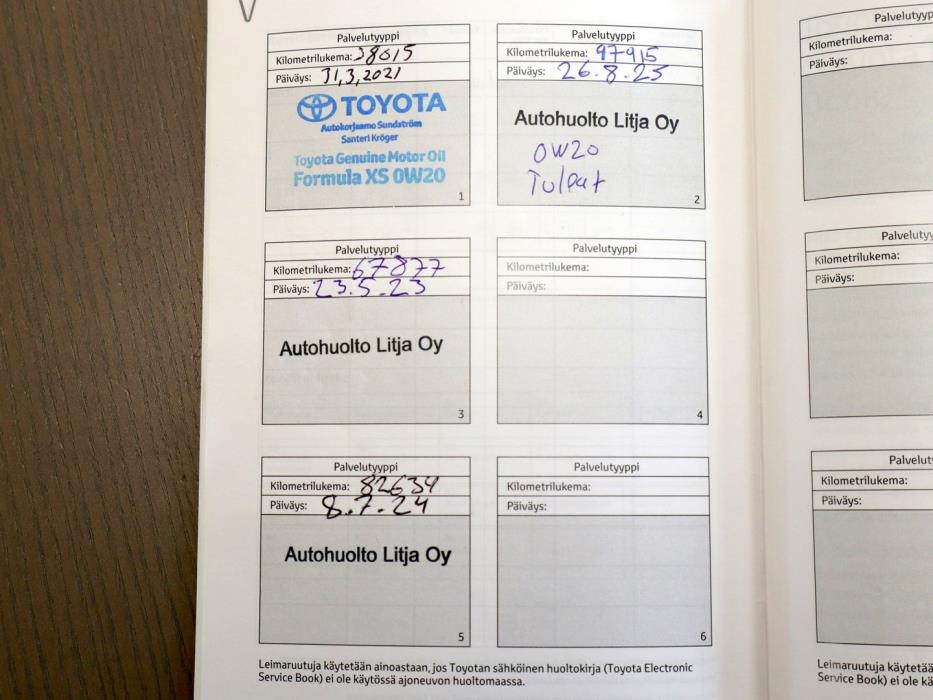 Palvelutyyppi
Kilometrilukema: 28015
Päiväys: 31,3,2021
TOYOTA
Autokorjaamo Sundström
Santeri Kröger
Toyota Genuine Motor Oil
Formula XS 0W20
1
Palvelutyyppi
Kilometrilukema: 97915
Päiväys: 26.8.25
Autohuolto Litja Oy
0W20
Tulpat
2
Palvelutyyppi
Kilometrilukema: 67877
Päiväys: 23.5.23
Autohuolto Litja Oy
3
Palvelutyyppi
Kilometrilukema:
Päiväys:
4
Palvelutyyppi
Kilometrilukema: 82634
Päiväys: 8.7.24
Autohuolto Litja Oy
5
Palvelutyyppi
Kilometrilukema:
Päiväys:
6
Leimaruutuja käytetään ainoastaan, jos Toyotan sähköinen huoltokirja (Toyota Electronic
Service Book) ei ole käytössä ajoneuvon huoltomaassa.
Kilometrilukema:
Päiväys:
Kilometrilukema:
Päiväys:
Kilometrilukema:
Päiväys:
Service Book) ei